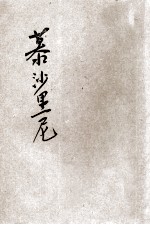 慕沙里尼